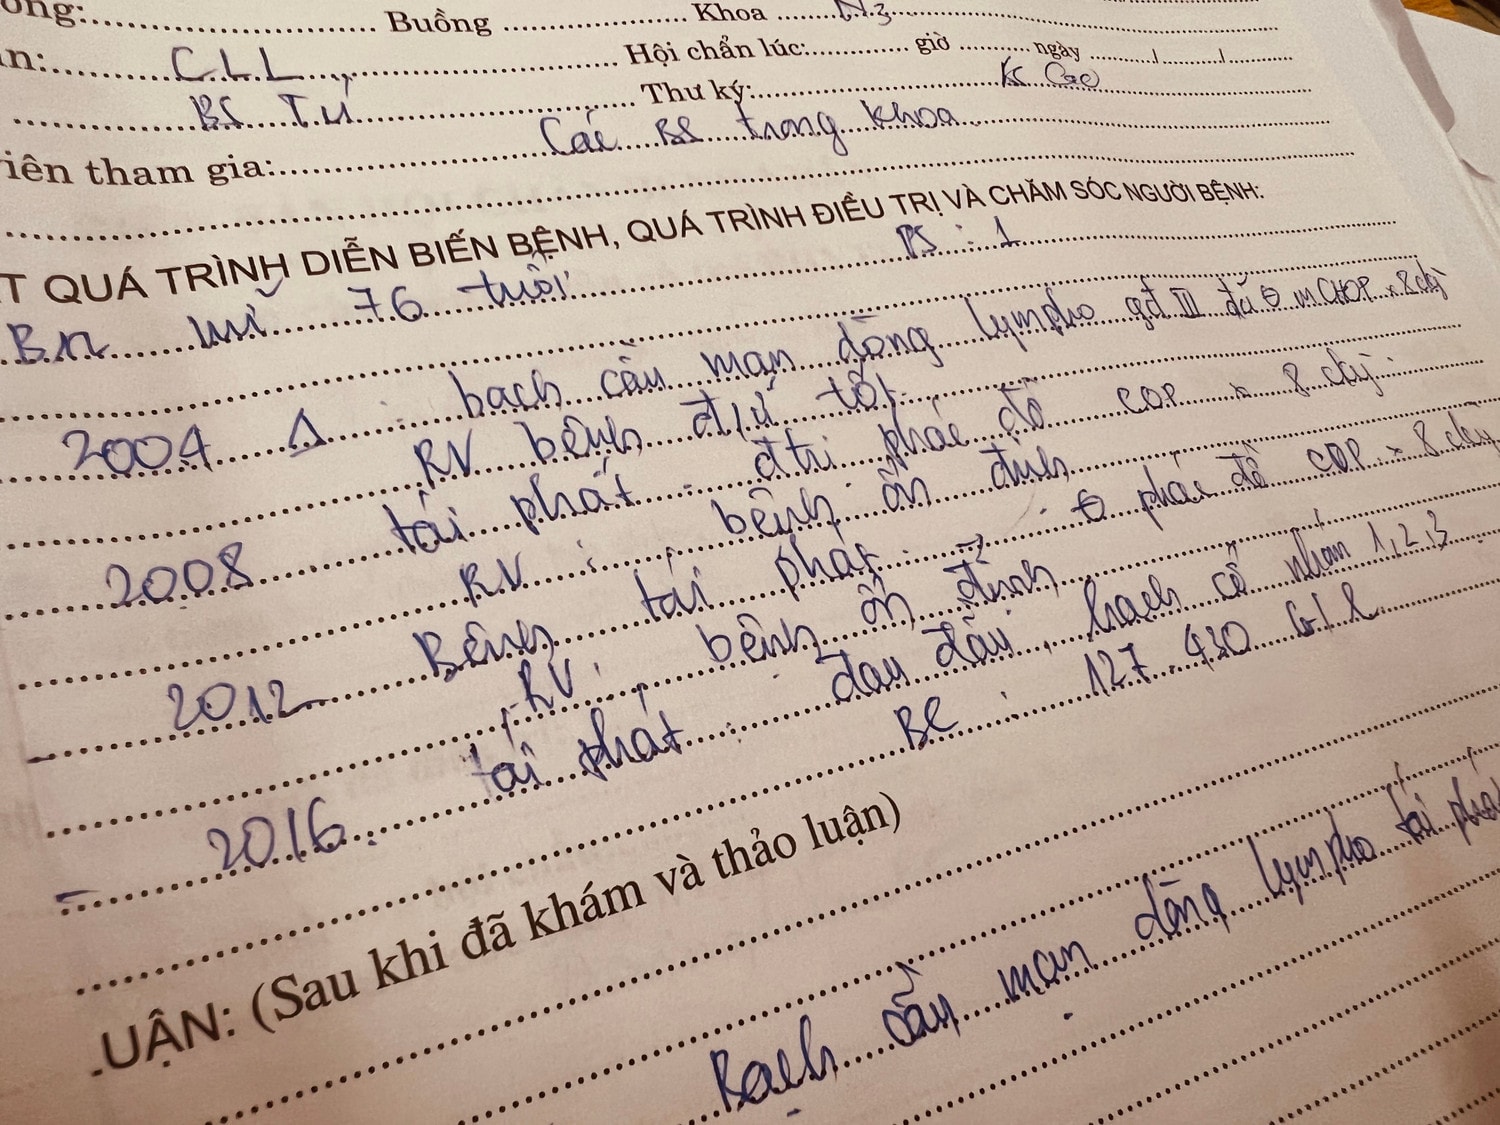 ồng:.......... Buồng .......... Khoa .......... N3
n:.......... CLL .......... Hội chẩn lúc:.......... giờ .......... ngày ........../........../..........
.......... BS Tú .......... Thư ký:..........
iên tham gia:.......... Các BS trong khoa
T QUÁ TRÌNH DIỄN BIẾN BỆNH, QUÁ TRÌNH ĐIỀU TRỊ VÀ CHĂM SÓC NGƯỜI BỆNH:
Bn nữ 76 tuổi PS : 1
2004 Δ : bạch cầu mạn dòng lympho gđ III đã θ mCHOP x 8 ck
RV bệnh đ/ứ tốt
2008 tái phát : đtrị phác đồ COP x 8 ck
RV : bệnh ổn định
- 2012 Bệnh tái phát : θ phác đồ COP x 8 ck
RV : bệnh ổn định
- 2016 : tái phát : đau đầu, hạch cổ nhóm 1, 2, 3
BC : 127.430 G/L
UẬN: (Sau khi đã khám và thảo luận)
Bạch cầu mạn dòng lympho tái phát